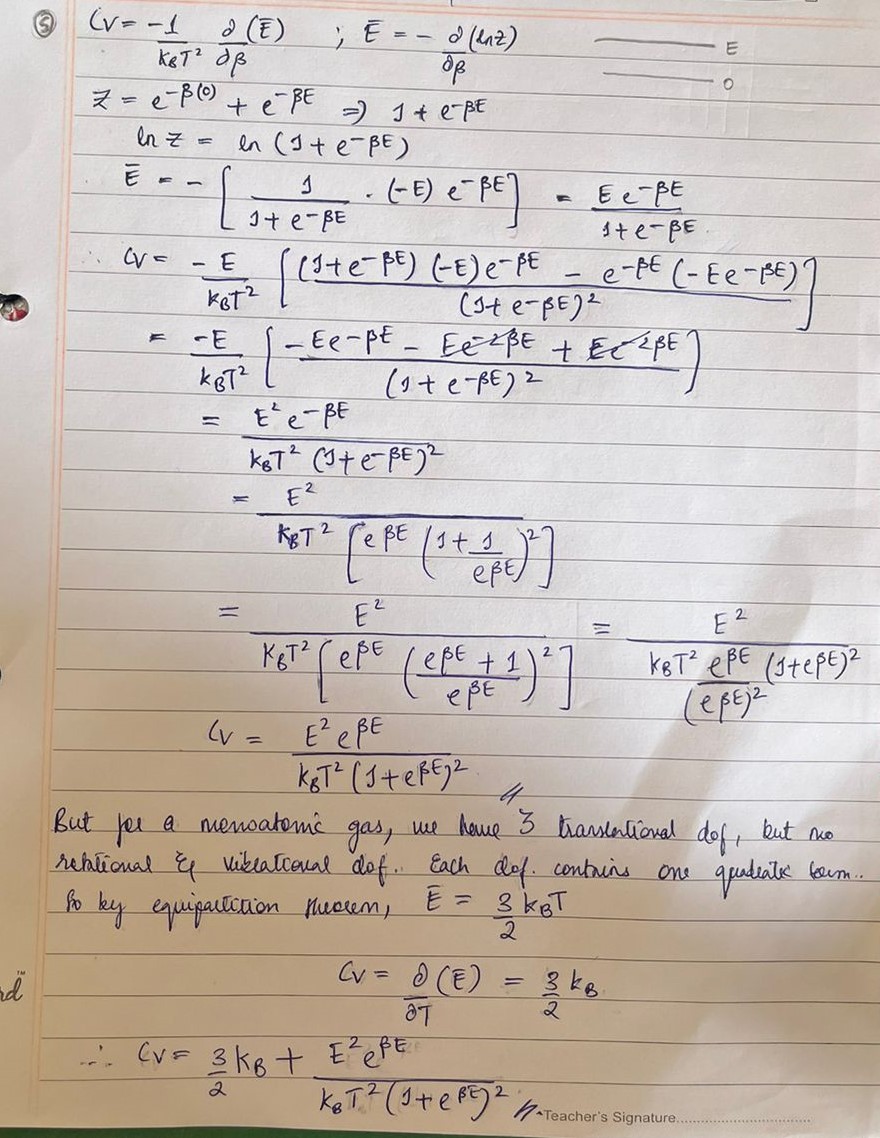 ⑤ Cv = -1/(k_BT²) ∂(Ē)/∂β ; Ē = - ∂(lnz)/∂β
E
0
Z = e^{-β(0)} + e^{-βE} ⇒ 1 + e^{-βE}
ln z = ln (1 + e^{-βE})
Ē = - [ 1/(1+e^{-βE}) · (-E) e^{-βE} ] = E e^{-βE}/(1+e^{-βE})
∴ Cv = -E/(k_BT²) [ ((1+e^{-βE}) (-E) e^{-βE} - e^{-βE} (-E e^{-βE}))/(1+e^{-βE})² ]
= -E/(k_BT²) [ (-E e^{-βE} - E e^{-2βE} + E e^{-2βE})/(1+e^{-βE})² ]
= E² e^{-βE}/(k_BT² (1+e^{-βE})²)
= E²/(k_BT² [ e^{βE} (1 + 1/e^{βE})² ])
= E²/(k_BT² [ e^{βE} ((e^{βE} + 1)/e^{βE})² ]) = E²/(k_BT² e^{βE}/(e^{βE})² (1+e^{βE})²)
Cv = E² e^{βE}/(k_BT² (1+e^{βE})²)
But for a monoatomic gas, we have 3 translational dof, but no
rotational & vibrational dof. Each dof. contains one quadratic term..
So by equipartition theorem, Ē = 3/2 k_BT
Cv = ∂(Ē)/∂T = 3/2 k_B
∴ Cv = 3/2 k_B + E² e^{βE}/(k_BT² (1+e^{βE})²)
rd™
Teacher's Signature..................................